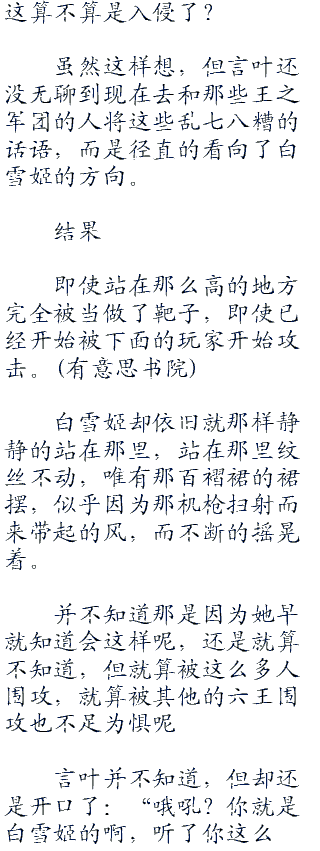 这算不算是入侵了？
虽然这样想，但言叶还
没无聊到现在去和那些王之
军团的人将这些乱七八糟的
话语，而是径直的看向了白
雪姬的方向。
结果
即使站在那么高的地方
完全被当做了靶子，即使已
经开始被下面的玩家开始攻
击。(有意思书院)
白雪姬却依旧就那样静
静的站在那里，站在那里纹
丝不动，唯有那百褶裙的裙
摆，似乎因为那机枪扫射而
来带起的风，而不断的摇晃
着。
并不知道那是因为她早
就知道会这样呢，还是就算
不知道，但就算被这么多人
围攻，就算被其他的六王围
攻也不足为惧呢
言叶并不知道，但却还
是开口了：“哦吼？你就是
白雪姬的啊，听了你这么